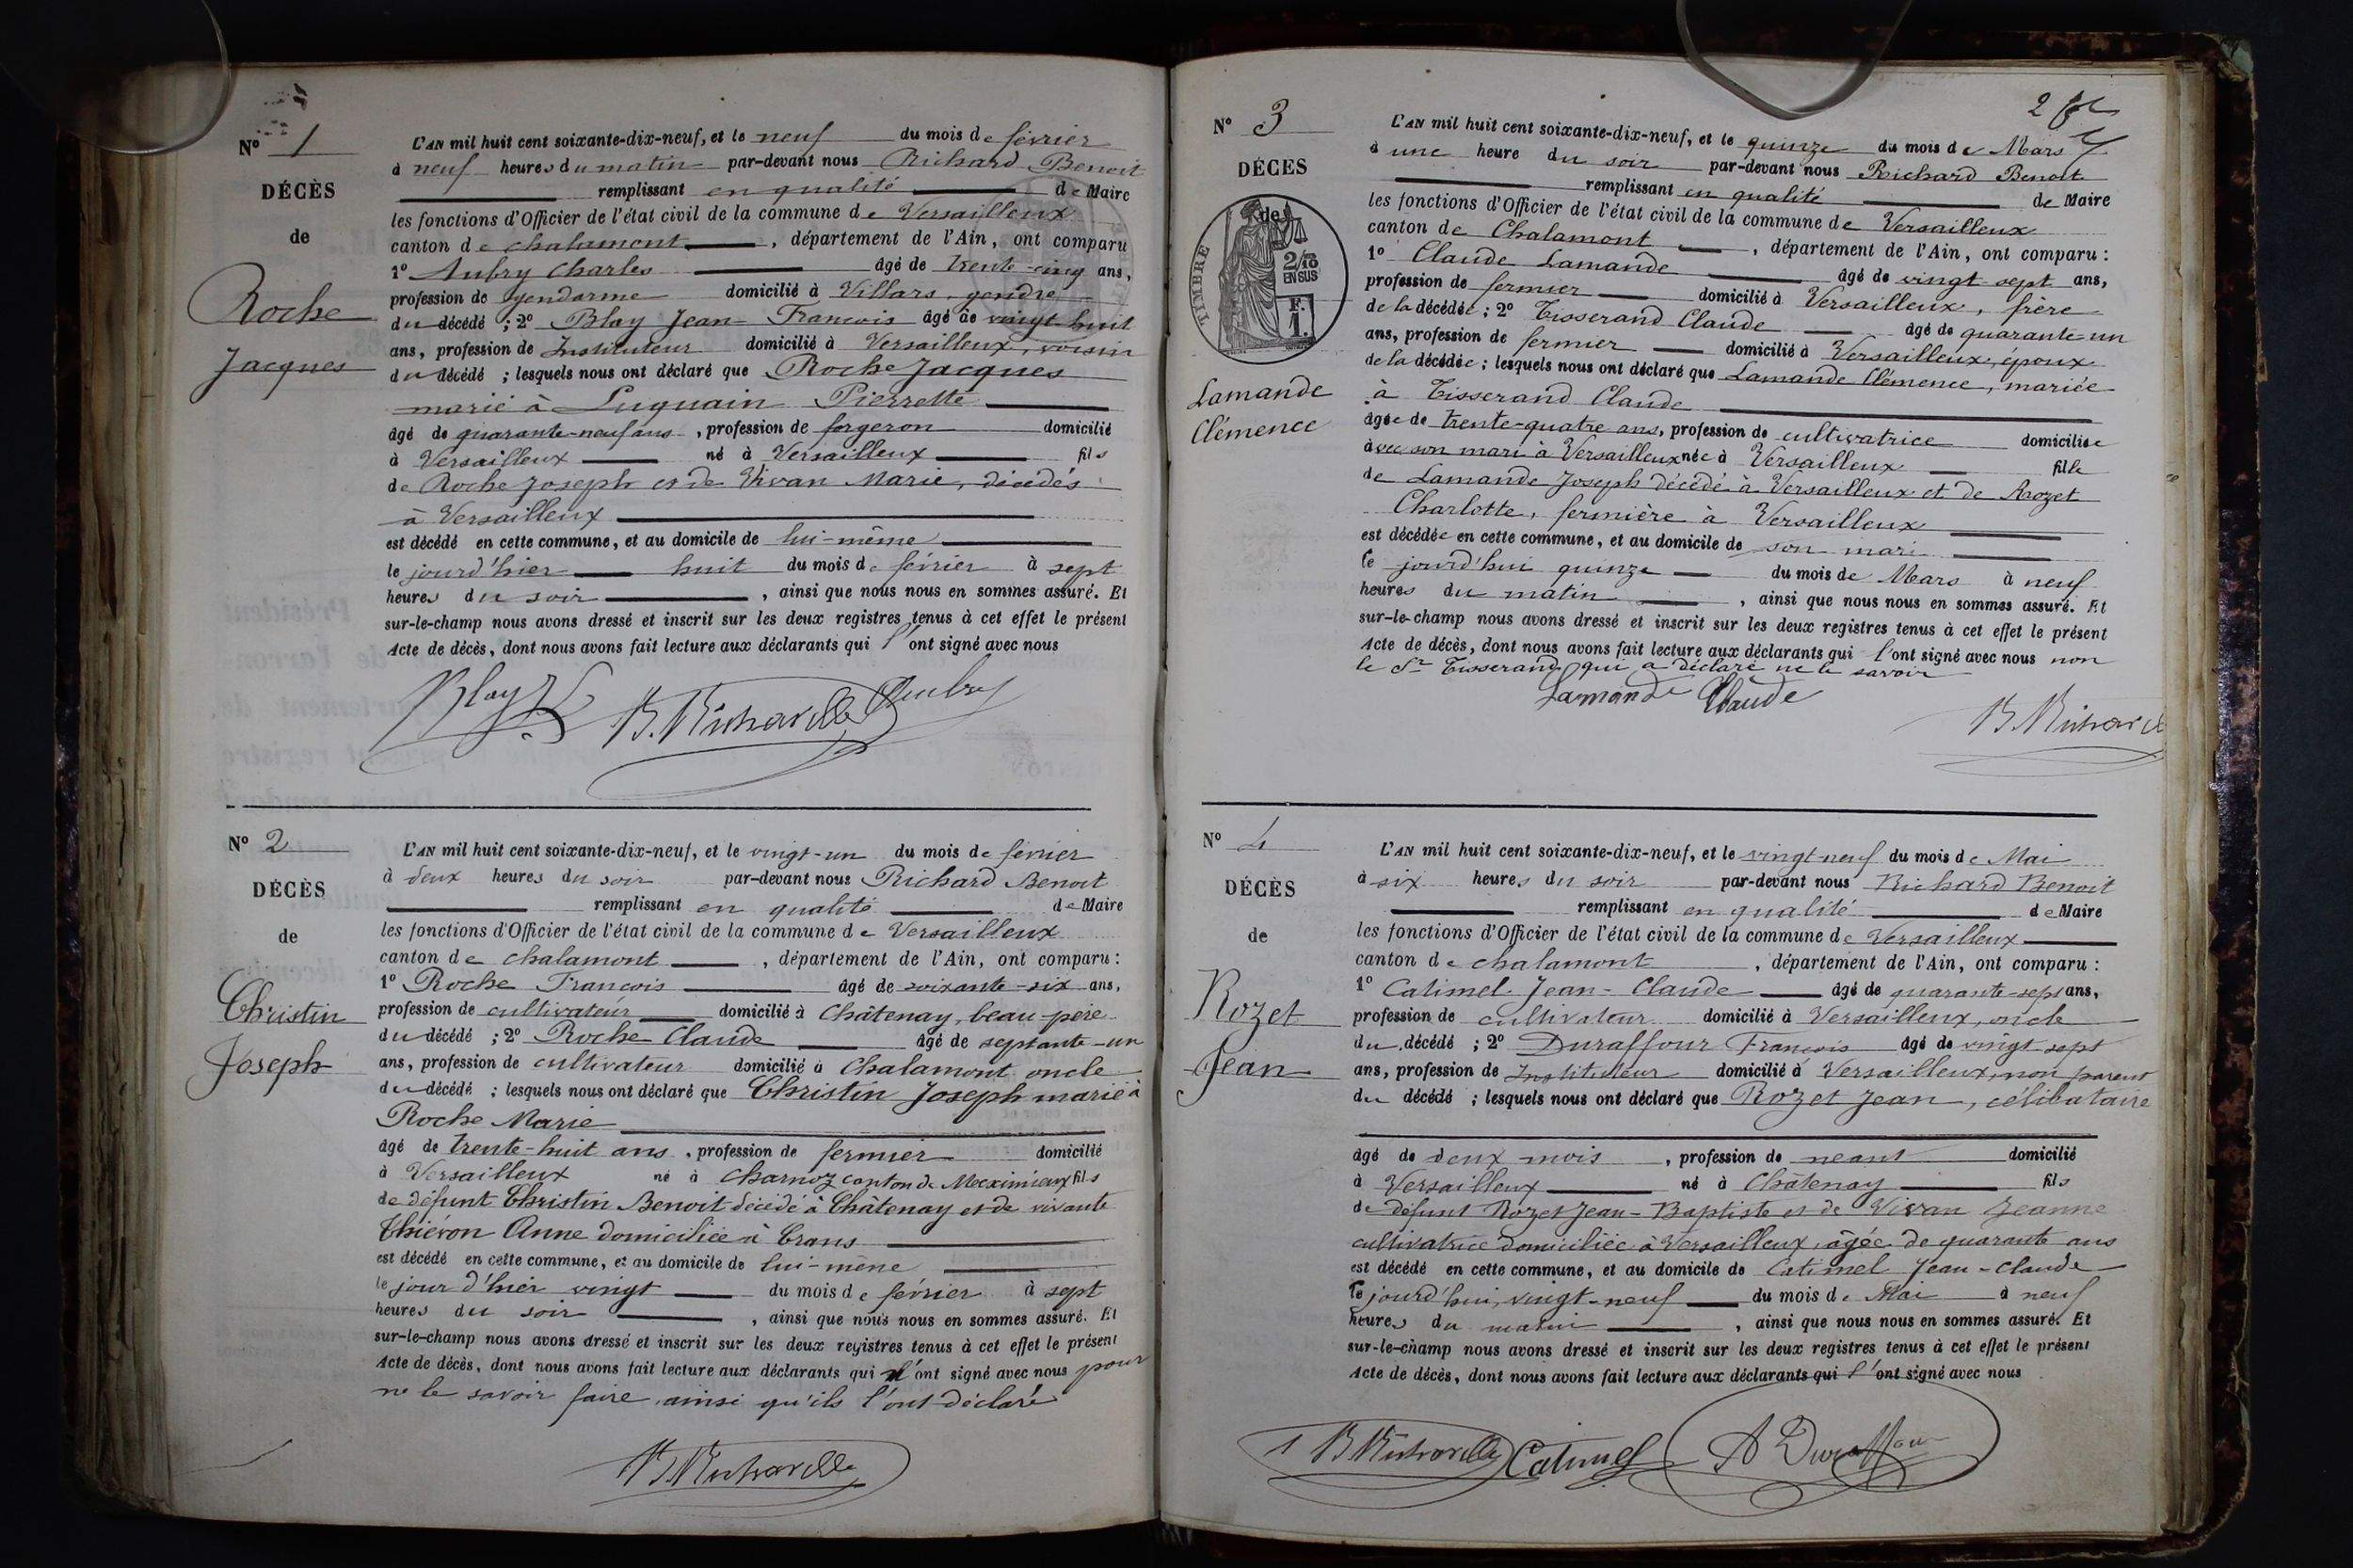 N° 1
DÉCÈS
de
Roche
Jacques
L'AN mil huit cent soixante-dix-neuf, et le neuf du mois de février
à neuf heures du matin par-devant nous Richard Benoit
remplissant en qualité de Maire
les fonctions d'Officier de l'état civil de la commune de Versailleux
canton de chalamont, département de l'Ain, ont comparu
1° Aubry Charles âgé de trente-cinq ans,
profession de gendarme domicilié à Villars, gendre
du décédé ; 2° Blay Jean-François âgé de vingt-huit
ans, profession de Instituteur domicilié à Versailleux, voisin
du décédé ; lesquels nous ont déclaré que Roche Jacques
marié à Luquain Pierrette
âgé de quarante-neuf ans, profession de forgeron domicilié
à Versailleux né à Versailleux fils
de Roche Joseph et de Vivan Marie, décédés
à Versailleux
est décédé en cette commune, et au domicile de lui-même
le jourd'hier huit du mois de février à sept
heures du soir, ainsi que nous nous en sommes assuré. Et
sur-le-champ nous avons dressé et inscrit sur les deux registres tenus à cet effet le présent
Acte de décès, dont nous avons fait lecture aux déclarants qui l'ont signé avec nous
Blay B. Richard Aubry
N° 2
DÉCÈS
de
Christin
Joseph
L'AN mil huit cent soixante-dix-neuf, et le vingt-un du mois de février
à deux heures du soir par-devant nous Richard Benoit
remplissant en qualité de Maire
les fonctions d'Officier de l'état civil de la commune de Versailleux
canton de chalamont, département de l'Ain, ont comparu :
1° Roche François âgé de soixante-six ans,
profession de cultivateur domicilié à Châtenay, beau-père
du décédé ; 2° Roche Claude âgé de septante-un
ans, profession de cultivateur domicilié à Chalamont oncle
du décédé ; lesquels nous ont déclaré que Christin Joseph marié à
Roche Marie
âgé de trente-huit ans, profession de fermier domicilié
à Versailleux né à Charnoz canton de Mecximieux fils
de défunt Christin Benoit décédé à Châtenay et de vivante
Thiévon Anne domiciliée à Crans
est décédé en cette commune, et au domicile de lui-même
le jour d'hier vingt du mois de février à sept
heures du soir, ainsi que nous nous en sommes assuré. Et
sur-le-champ nous avons dressé et inscrit sur les deux registres tenus à cet effet le présent
Acte de décès, dont nous avons fait lecture aux déclarants qui n'ont signé avec nous pour
ne le savoir faire, ainsi qu'ils l'ont déclaré
B. Richard
2
N° 3
DÉCÈS
de
TIMBRE
2/10
EN SUS
F.
1.
Lamande
Clémence
L'AN mil huit cent soixante-dix-neuf, et le quinze du mois de Mars
à une heure du soir par-devant nous Richard Benoit
remplissant en qualité de Maire
les fonctions d'Officier de l'état civil de la commune de Versailleux
canton de Chalamont, département de l'Ain, ont comparu :
1° Claude Lamande âgé de vingt sept ans,
profession de fermier domicilié à Versailleux, frère
de la décédée ; 2° Tisserand Claude âgé de quarante-un
ans, profession de fermier domicilié à Versailleux, époux
de la décédée ; lesquels nous ont déclaré que Lamande Clémence, mariée
à Tisserand Claude
âgée de trente-quatre ans, profession de cultivatrice domiciliée
avec son mari à Versailleux née à Versailleux fille
de Lamande Joseph décédé à Versailleux et de Rozet
Charlotte, fermière à Versailleux
est décédée en cette commune, et au domicile de son mari
le jourd'hui quinze du mois de Mars à neuf
heures du matin, ainsi que nous nous en sommes assuré. Et
sur-le-champ nous avons dressé et inscrit sur les deux registres tenus à cet effet le présent
Acte de décès, dont nous avons fait lecture aux déclarants qui l'ont signé avec nous non
le Sr Tisserand, qui a déclaré ne le savoir
Lamande Claude
B. Richard
N° 4
DÉCÈS
de
Rozet
Jean
L'AN mil huit cent soixante-dix-neuf, et le vingt-neuf du mois de Mai
à six heures du soir par-devant nous Richard Benoit
remplissant en qualité de Maire
les fonctions d'Officier de l'état civil de la commune de Versailleux
canton de chalamont, département de l'Ain, ont comparu :
1° Catimel Jean-Claude âgé de quarante-sept ans,
profession de cultivateur domicilié à Versailleux, oncle
du décédé ; 2° Duraffour François âgé de vingt-sept
ans, profession de Instituteur domicilié à Versailleux, non parent
du décédé ; lesquels nous ont déclaré que Rozet Jean, célibataire
âgé de deux mois, profession de néant domicilié
à Versailleux né à Châtenay fils
de défunt Rozet Jean-Baptiste et de Vivan Jeanne
cultivatrice domiciliée à Versailleux, âgée de quarante ans
est décédé en cette commune, et au domicile de Catimel Jean-Claude
le jourd'hui, vingt-neuf du mois de Mai à neuf
heures du matin, ainsi que nous nous en sommes assuré. Et
sur-le-champ nous avons dressé et inscrit sur les deux registres tenus à cet effet le présent
Acte de décès, dont nous avons fait lecture aux déclarants qui l'ont signé avec nous
B. Richard Catimel A Duraffour